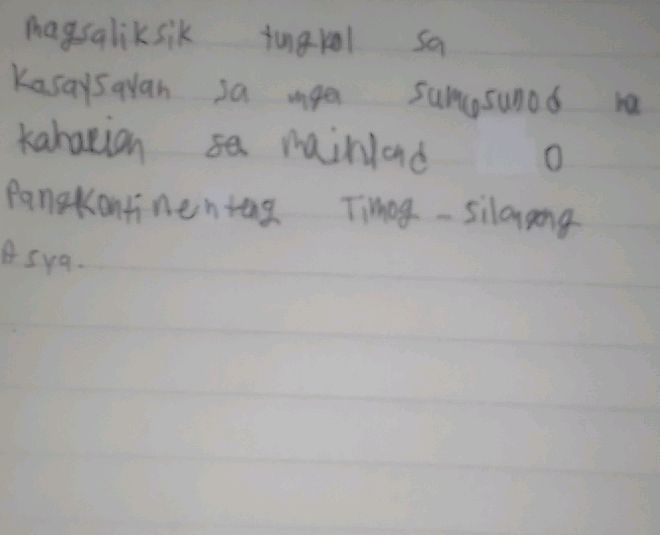 Magsaliksik tungkol sa
Kasaysayan sa mga sumusunod na
kaharian sa mainland O
Pangkontinenteng Timog - silangang
Asya.